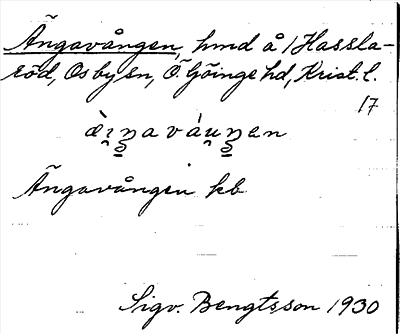 Ängavången, hmd å 1 Hassla-
röd, Osby sn, Ö. Göinge hd, Krist. l.
17
Ängavången kb
Sigv. Bengtsson 1930